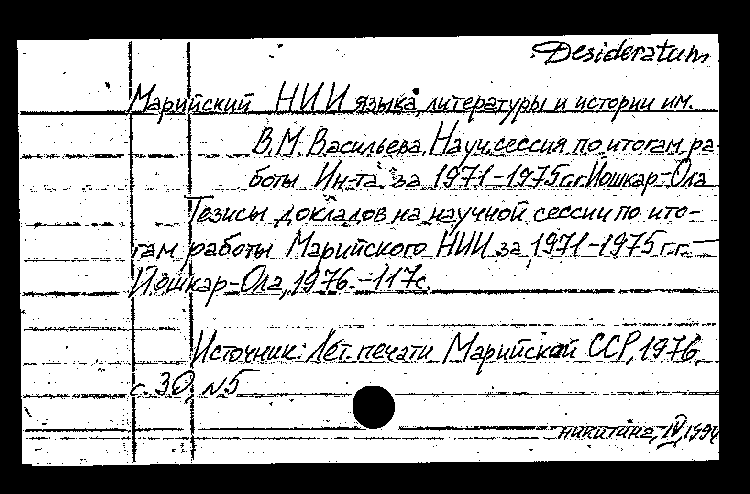 Desideratum
Марийский НИИ языка, литературы и истории им.
В.М. Васильева. Науч.сессия по итогам ра-
боты Ин-та за 1971-1975гг. Йошкар-Ола
Тезисы докладов на научной сессии по ито-
гам работы Марийского НИИ за 1971-1975 г.г. —
Йошкар-Ола, 1976. - 117с.
Источник: Лет. печати Марийской ССР, 1976,
с. 30, №5
никитина, IV, 199